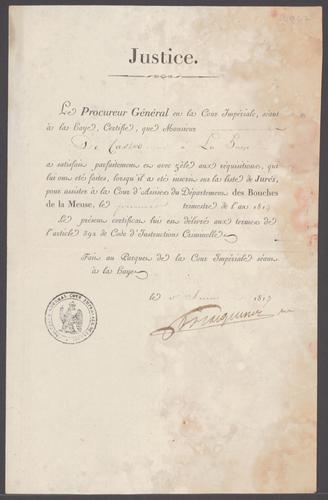 Justice.
Le Procureur Général en la Cour Impériale, séant
à la Haye, Certifie, que Monsieur
De Castro à La Haye
a satisfait parfaitement et avec zèle aux réquisitions, qui
lui ont été faites, lorsqu'il a été inscrit sur la liste de Jurés,
pour assister à la Cour d'Assises du Département des Bouches
de la Meuse, le premier trimestre de l'an 1813
Le présent certificat lui est délivré aux termes de
l'article 392 du Code d'Instruction Criminelle.
Fait au Parquet de la Cour Impériale séant
à la Haye
le 1813